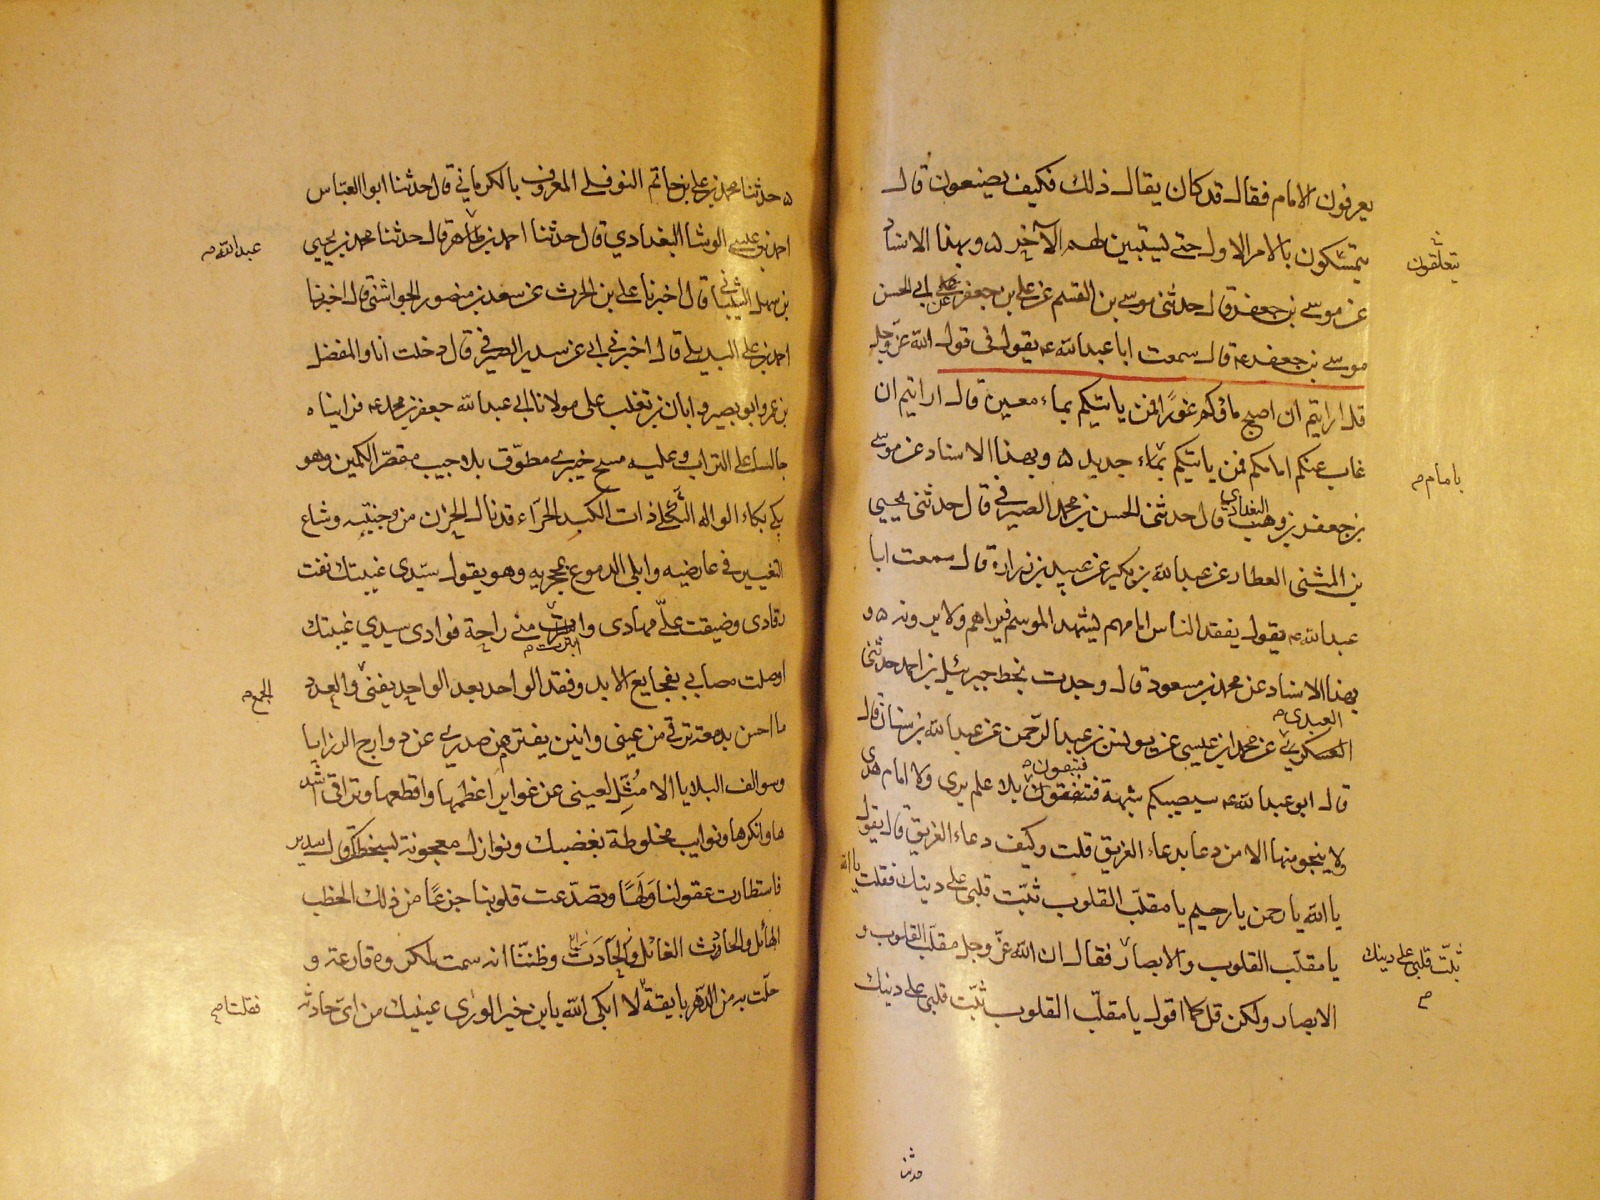 يعرفون الامام فقال قد كان يقال ذلك فكيف يصنعون قال
يتمسكون بالامر الاول حتى يستبين لهم الآخر ٥ وبهذا الاسناد
يتعلقون
عن موسى بن جعفر قال حدثنى موسى بن القسم عن على بن جعفر عن ابى الحسن
موسى بن جعفر ع قال سمعت ابا عبدالله ع يقول فى قول الله عز وجل
قل ارايتم ان اصبح ماؤكم غورًا فمن ياتيكم بماء معين قال ارايتم ان
غاب عنكم امامكم فمن ياتيكم بماء جديد ٥ وبهذا الاسناد عن موسى
بامام م
بن جعفر بن وهب البغدادي قال حدثنى الحسن بن محمد الصيرفي قال حدثنى يحيى
بن المثنى العطار عن عبدالله بن بكير عن عبيد بن زرارة قال سمعت ابا
عبدالله ع يقول يفقد الناس امامهم ليشهد الموسم فيراهم ولا يرونه ٥ و
بهذا الاسناد عن محمد بن مسعود قال وجدت بخط جبرئيل بن احمد حدثنى
العبيدى م
العسكري عن محمد بن عيسى عن يونس بن عبدالرحمن عن عبدالله بن سنان قال
قال ابو عبدالله ع سيصيبكم شبهة فتبقون بلا علم يرى ولا امام هدى
لا ينجو منها الا من دعا بدعاء الغريق قلت وكيف دعاء الغريق قال يقول
يا الله يا رحمن يا رحيم يا مقلب القلوب ثبّت قلبى على دينك فقلت يا الله
يا مقلب القلوب والابصار فقال ان الله عزّ وجل مقلب القلوب و
ثبّت قلبى على دينك م
الابصار ولكن قل كما اقول يا مقلّب القلوب ثبّت قلبى على دينك
حدثنا
٥ حدثنا محمد بن على بن حاتم النوفلى المعروف بالكرماني قال حدثنا ابو العباس
احمد بن عيسى الوشا البغدادي قال حدثنا احمد بن طاهر قال حدثنا محمد بن يحيى
عبدالله م
بن سهل الشيباني قال اخبرنا على بن الحرث عن سعد بن منصور الجواشنى قال اخبرنا
احمد بن على البديلى قال اخبرني ابى عن سدير الصيرفي قال دخلت انا والمفضل
بن عمر وابو بصير وابان بن تغلب على مولانا ابى عبدالله جعفر بن محمد ع فرايناه
جالسا على التراب وعليه مسح خيبري مطوّق بلا جيب مقصّر الكمين وهو
يبكي بكاء الواله الثكلى ذات الكبد الحرّاء قد نال الحزن من وجنتيه وشاع
التغيير فى عارضيه وابلى الدموع محجريه وهو يقول سيّدى غيبتك نفت
رقادى وضيقت علىّ مهادى وابتزت منى راحة فوادى سيدي غيبتك
اوصلت مصابي بفجايع الابد وفقد الواحد بعد الواحد يفنى والعدد
الجمع م
ما احس بدمعة ترقى من عينى وانين يفتر من صدري عن دوارج الرزايا
وسوالف البلايا الا مُثّل لعينى عن غواير اعظمها وافظعها وتراقى اشد
ها وانكرها ونوايب مخلوطة بغضبك ونوازل معجونة بسخطك قال سدير
فاستطارت عقولنا وَلَهًا وتصدّعت قلوبنا جزعًا من ذلك الخطب
الهائل والحادث الغائل وظننّا انه سمت لمكروه قارعة و
حلّت به من الدهر بايقة لا ابكى الله يا بن خير الورى عينيك من اىّ حادثه
فقلنا م